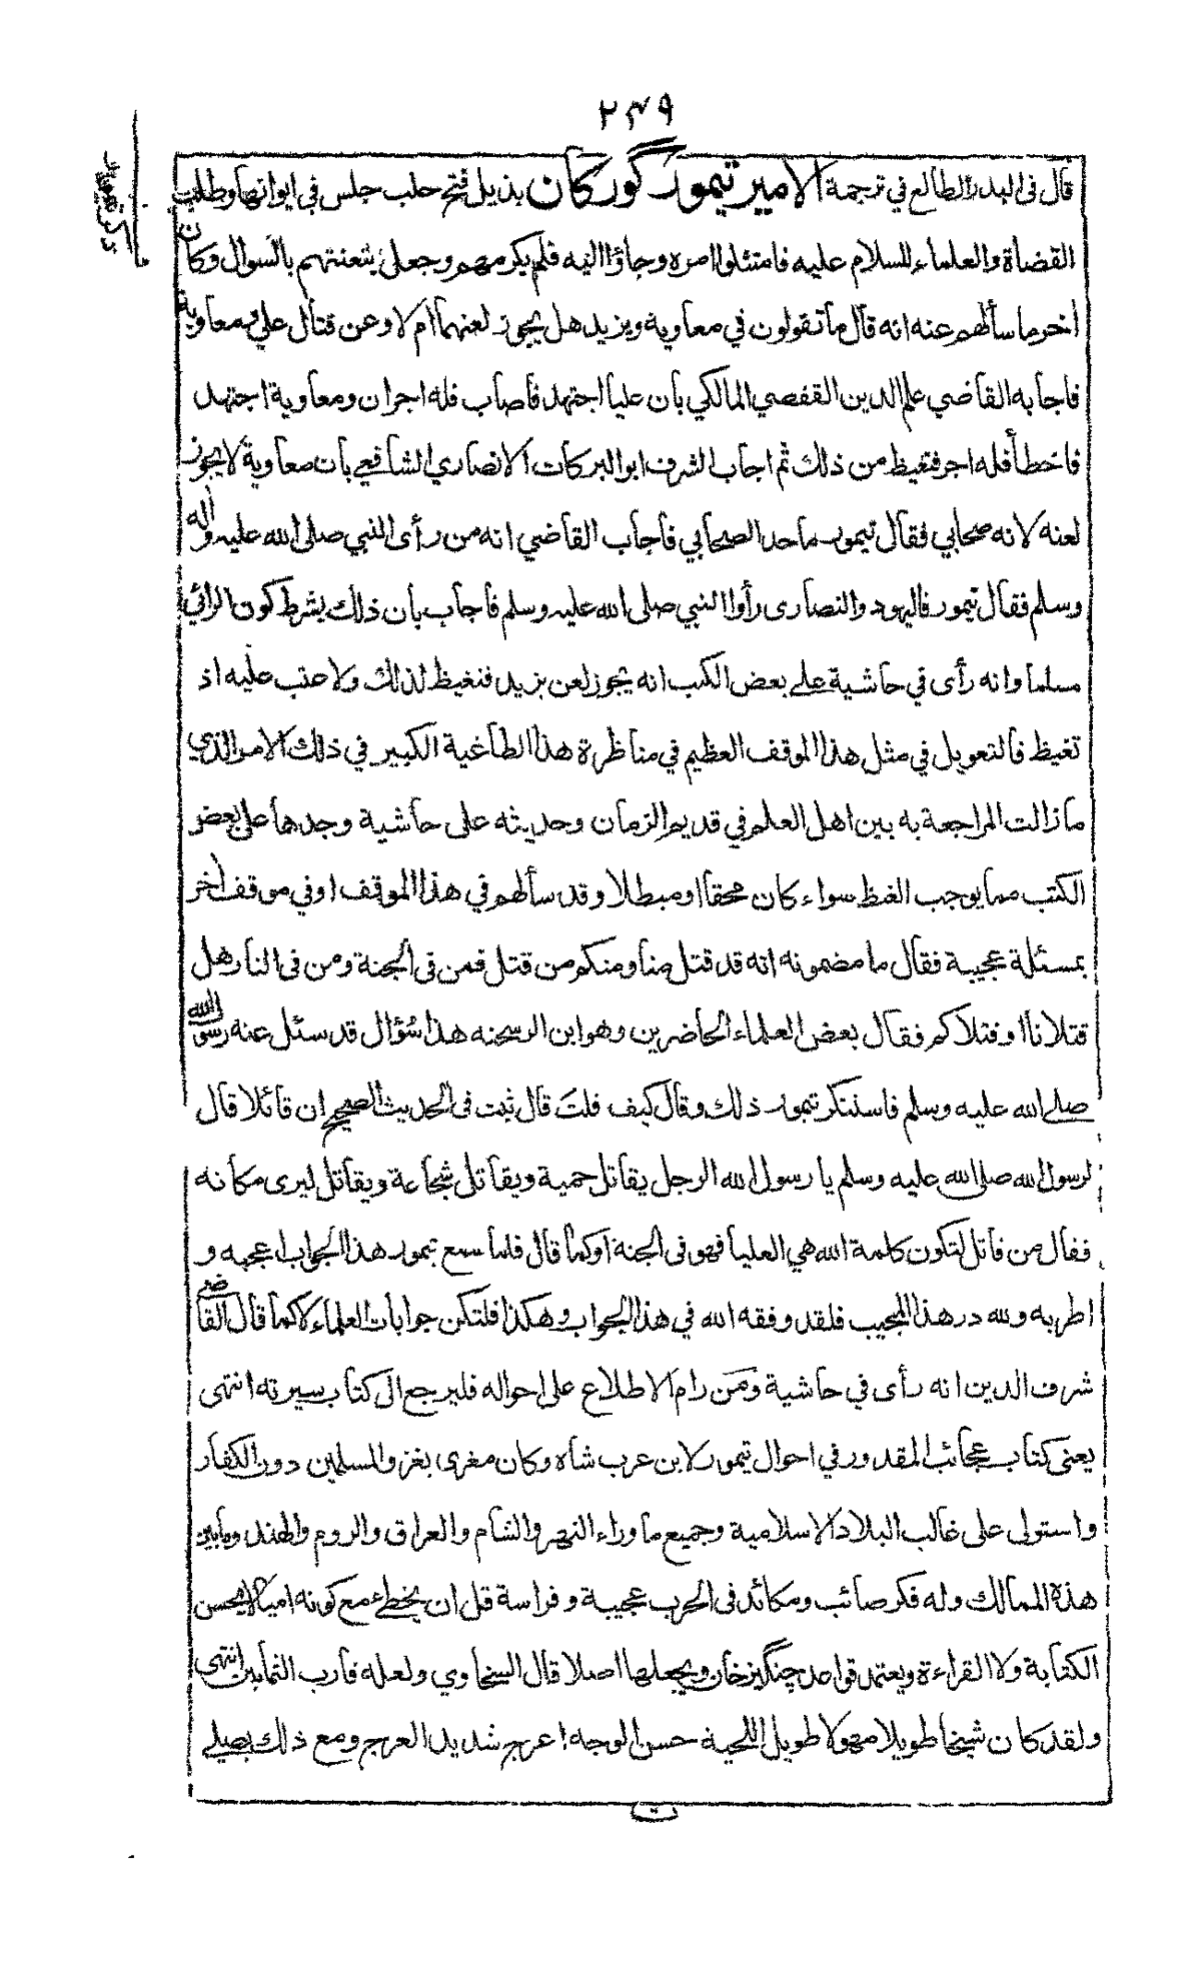 ٢٤٩
ذكر تيمور
قال في البدر الطالع في ترجمة الامير تيمور گورکان بذيل فتح حلب جلس في ايوانها وطلب
القضاة والعلماء للسلام عليه فامتثلوا امره وجاؤا اليه فلم يكرمهم وجعل يتعنتهم بالسوال وكان
اخر ما سألهم عنه انه قال ما تقولون في معاوية ويزيد هل يجوز لعنهما ام لا وعن قتال علي ومعاوية
فاجابه القاضي علم الدين القفصي المالكي بان عليا اجتهد فاصاب فله اجران ومعاوية اجتهد
فاخطأ فله اجر فتغيظ من ذلك ثم اجاب الشرف ابو البركات الانصاري الشافعي بان معاوية لا يجوز
لعنه لانه صحابي فقال تيمور ما حد الصحابي فاجاب القاضي انه من رأى النبي صلى الله عليه واله
وسلم فقال تيمور فاليهود والنصارى رأوا النبي صلى الله عليه وسلم فاجاب بان ذلك بشرط كون الرائي
مسلما وانه رأى في حاشية على بعض الكتب انه يجوز لعن يزيد فتغيظ لذلك ولا عتب عليه اذ
تغيظ فالتعويل في مثل هذا الموقف العظيم في مناظرة هذا الطاغية الكبير في ذلك الامر الذي
ما زالت المراجعة به بين اهل العلم في قديم الزمان وحديثه على حاشية وجدها على بعض
الكتب مما يوجب الغظ سواء كان محقا او مبطلا وقد سألهم في هذا الموقف او في موقف اخر
بمسئلة عجيبة فقال ما مضمونه انه قد قتل منا ومنكم من قتل فمن في الجنة ومن في النار هل
قتلانا او قتلاكم فقال بعض العلماء الحاضرين وهو ابن الشحنه هذا سُؤال قد سئل عنه رسول الله
صلى الله عليه وسلم فاستنكر تيمور ذلك وقال كيف قلتَ قال ثبت في الحديث الصحيح ان قائلا قال
لرسول الله صلى الله عليه وسلم يا رسول الله الرجل يقاتل حمية ويقاتل شجاعة ويقاتل ليرى مكانه
فقال من قاتل لتكون كلمة الله هي العليا فهو في الجنة او كما قال فلما سمع تيمور هذا الجواب اعجبه و
اطربه ولله در هذا المجيب فلقد وفقه الله في هذا الجواب وهكذا فلتكن جوابات العلماء لا كما قال القاضي
شرف الدين انه رأى في حاشية ومَن رام الاطلاع على احواله فليرجع الى كتاب سيرته انتهى
يعنى كتاب عجائب المقدور في احوال تيمور لابن عرب شاه وكان مغرى بغزو المسلمين دون الكفار
واستولى على غالب البلاد الاسلامية وجميع ما وراء النهر والشام والعراق والروم والهند وما بين
هذه الممالك وله فكر صائب ومكائد في الحرب عجيبة وفراسة قل ان يخطئ مع كونه اميا لا يحسن
الكتابة ولا القراءة ويعتمد قواعد چنگيز خان ويجعلها اصلا قال السخاوي ولعله قارب الثمانين انتهى
ولقد كان شيخا طويلا مهولا طويل اللحية حسن الوجه اعرج شديد العرج ومع ذلك يصلي